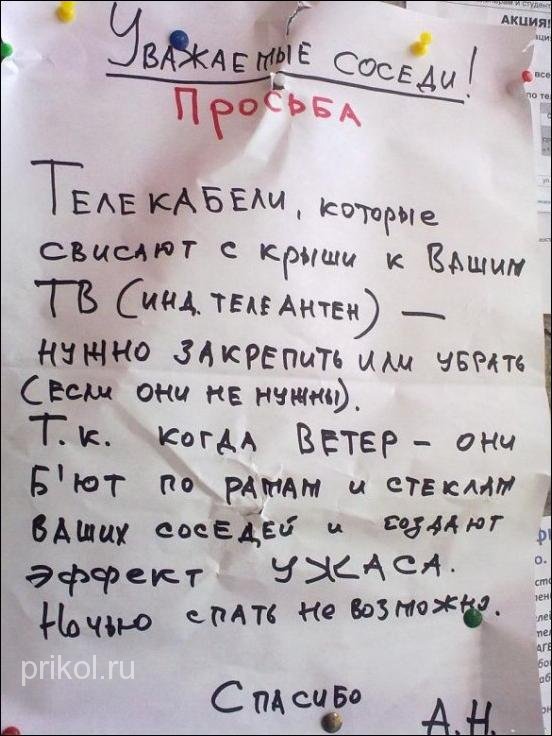 Уважаемые соседи!
Просьба
Телекабели, которые
свисают с крыши к Вашим
ТВ (инд. теле антен) —
нужно закрепить или убрать
(если они не нужны).
Т.к. когда ВЕТЕР – они
б'ют по рамам и стеклам
ваших соседей и создают
эффект УЖАСА.
Ночью спать не возможно.
Спасибо
А.Н.
prikol.ru
АКЦИЯ!